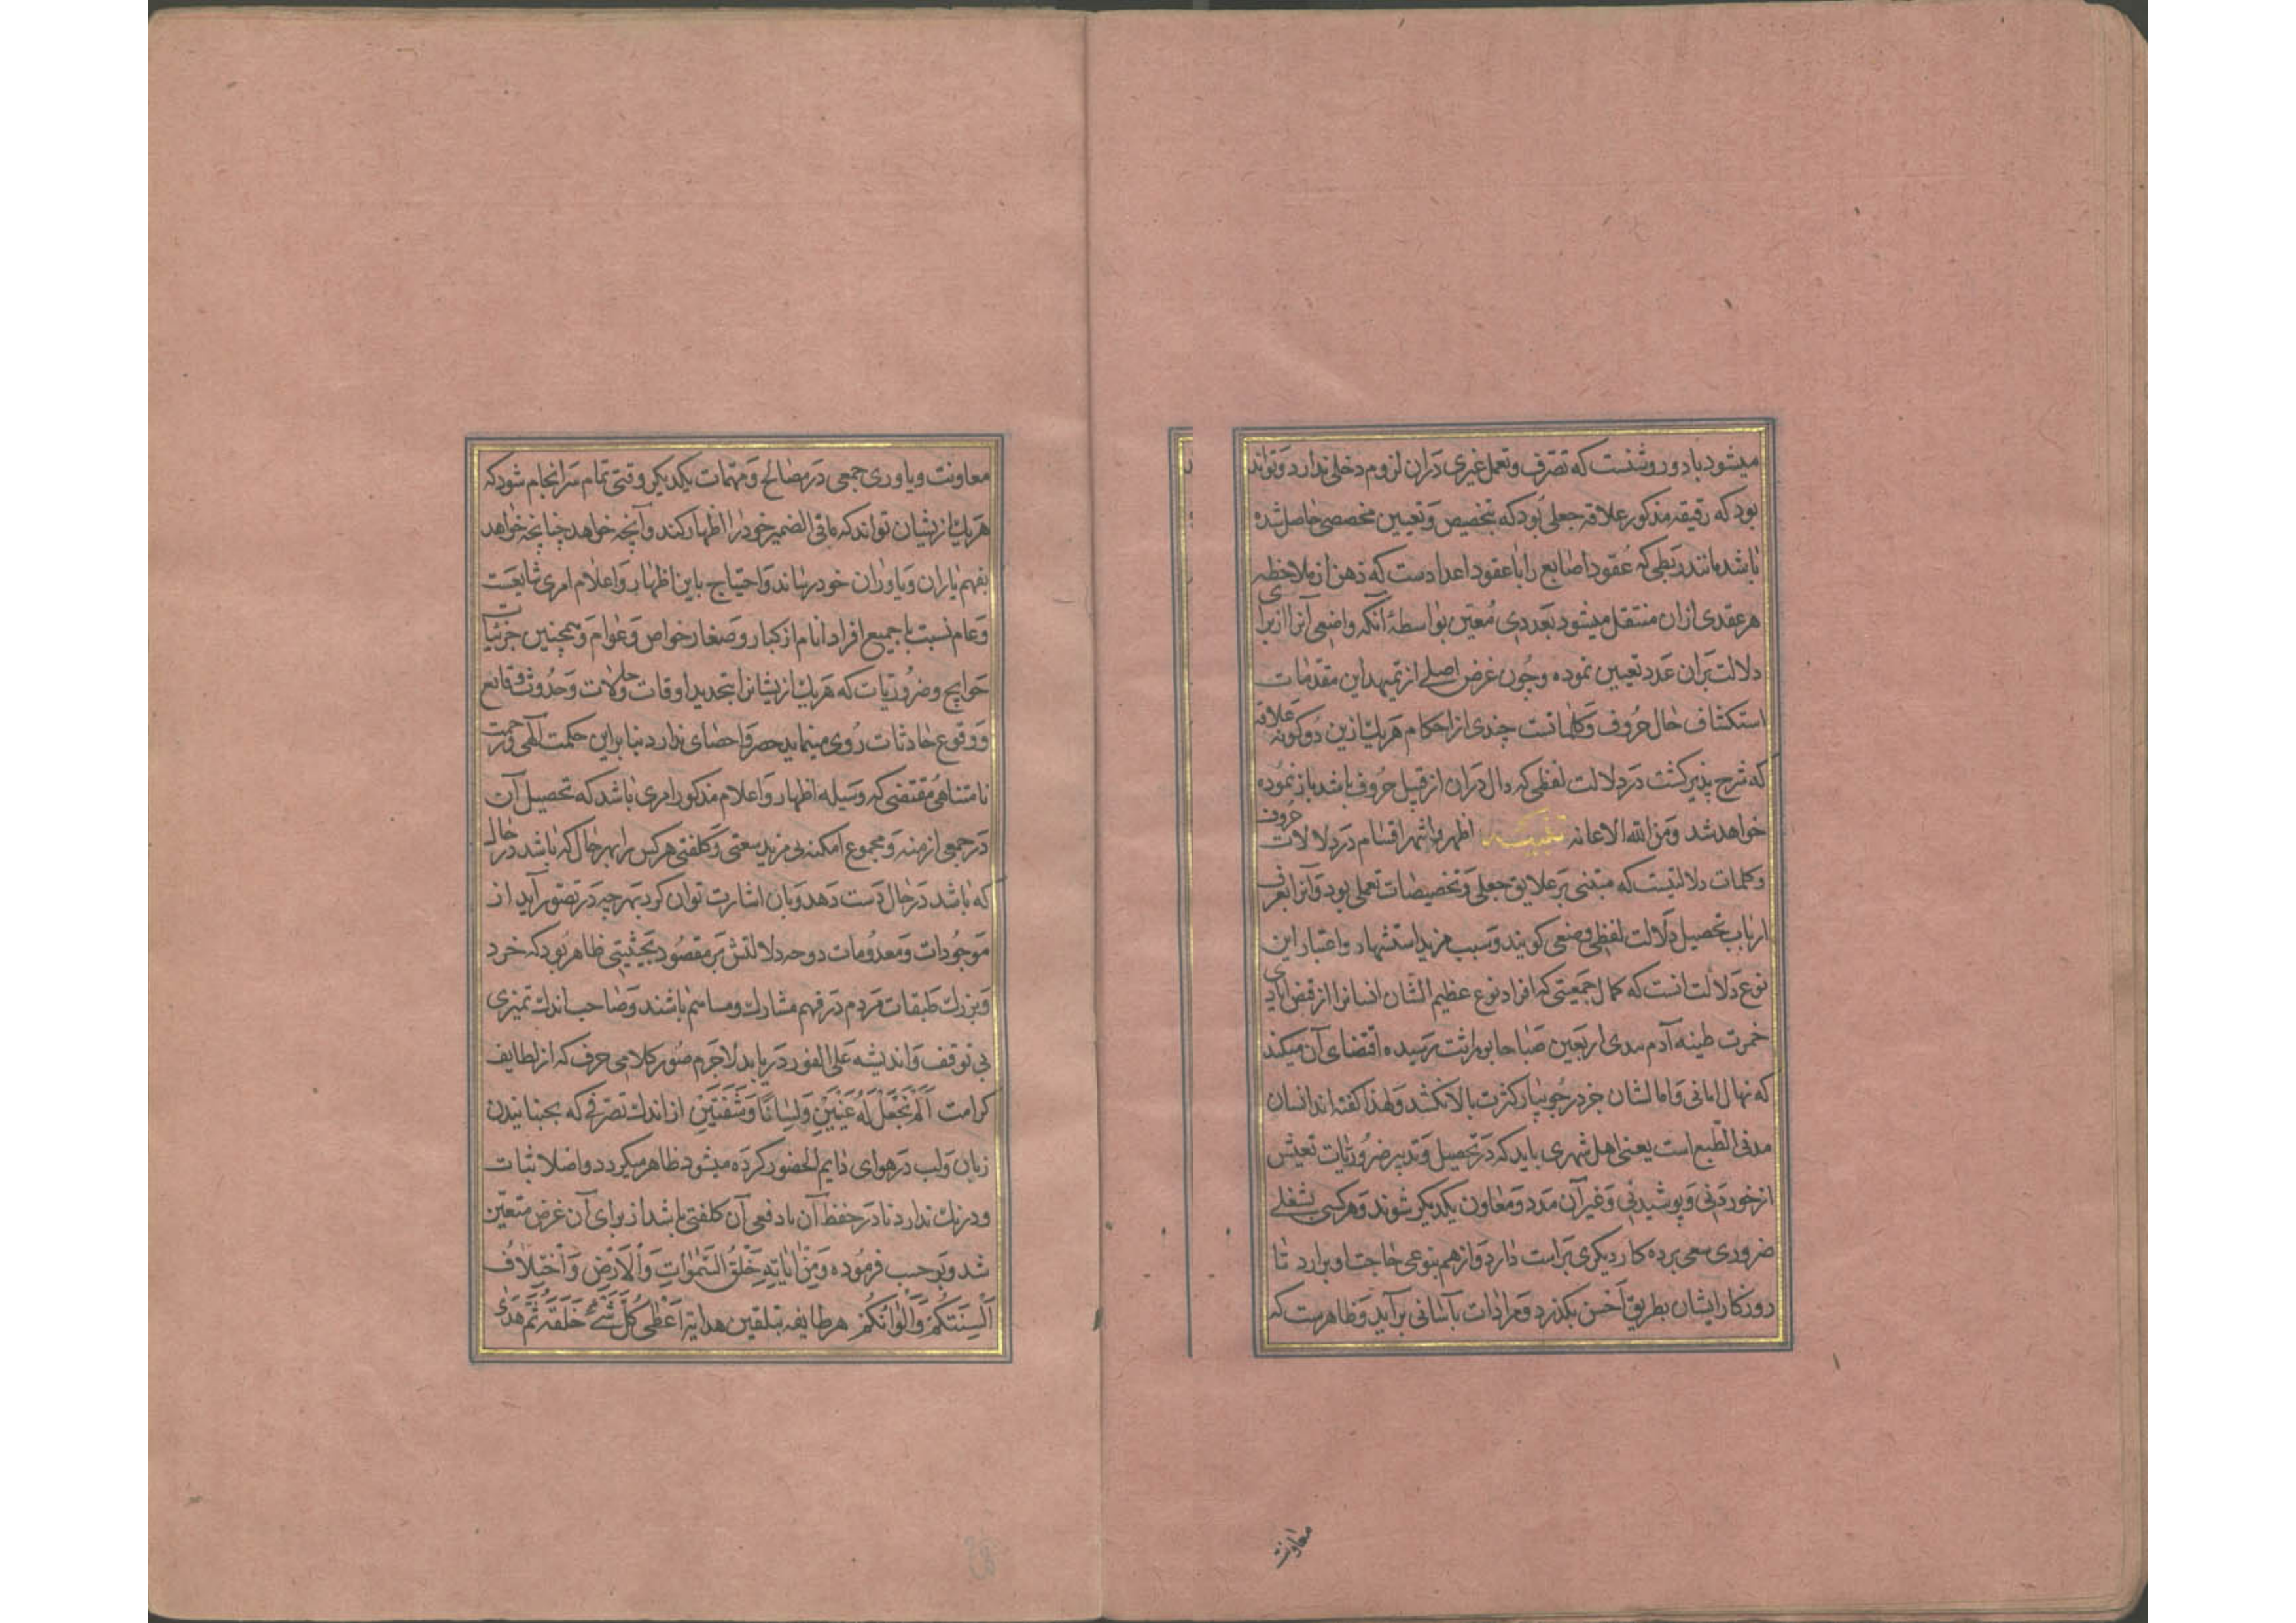 میشود باد و روشنست که تصرف و تعمل غیری دران لزوم دخلی ندارد و تواند
بود که رقیقه مذکور علاقه جعلی بود که بتخصیص و تعیین مخصصی حاصل شده
باشد مانند ربطی که عقود اصابع را با عقود اعدادست که ذهن از ملاحظه
هر عقدی ازان منتقل میشود بعددی معین بواسطهٔ آنکه واضعی آنرا از برای
دلالت بران عدد تعیین نموده و چون غرض اصلی از تمهید این مقدمات
استکشاف حال حروف و کلماتست چندی از احکام هر یک ازین دو کونه علاقه
که شرح پذیر کشت در دلالت لفظی که دال دران از قبیل حروف باشد باز نموده
خواهد شد و من الله الاعانه تنبیه اظهر و اشهر اقسام در دلالات حروف
و کلمات دلالتیست که مبتنی بر علایق جعلی و تخصیصات تعملی بود و آنرا بعرف
ارباب تحصیل دلالت لفظی وضعی کویند و سبب مزید استشهاد و اعتبار این
نوع دلالت انست که کمال جمعیتی که افراد نوع عظیم الشان انسانرا از فیض ایادی
خمرت طینه آدم بیدی اربعین صباحا بوراثت رسیده اقتضای آن میکند
که نهال امانی و امالشان جز در جویبار کثرت بالا نکشد و لهذا کفته اند انسان
مدنی الطبع است یعنی اهل شهری باید که در تحصیل و تدبیر ضروریات تعیش
از خوردنی و پوشیدنی و غیر آن مدد و معاون یکدیکر شوند و هر کسی بشغلی
ضروری سعی برده کار دیکری براست دارد و از هم بنوعی حاجت او برارد تا
روزکار ایشان بطریق احسن بکذرد و مرادات بآسانی برآید و ظاهرست که
معاونت
معاونت و یاوری جمعی در مصالح و مهمات یکدیکر وقتی تمام سرانجام شود که
هر یک ازیشان تواند که ما فی الضمیر خود را اظهار کند و آنچه خواهد چنانچه خواهد
بفهم یاران و یاوران خود رساند و احتیاج باین اظهار و اعلام امری شایعست
و عام نسبت با جمیع افراد انام از کبار و صغار خواص و عوام و همچنین جزئیات
حوایج و ضروریات که هر یک ازیشانرا بتجدید اوقات و حالات و حدوث وقایع
و وقوع حادثات روی مینماید حصر و احصای ندارد بنابراین حکمت آلهی و رحمت
نامتناهی مقتضی که وسیله اظهار و اعلام مذکور امری باشد که تحصیل آن
در جمیع ازمنه و مجموع امکنه بی مزید سعتی و کلفتی هر کس را بهر حال که باشد در حال
که باشد در حال دست دهد و بان اشارت توان کرد بهر چه در تصور آید از
موجودات و معدومات و وجه دلالتش بر مقصود بحیثیتی ظاهر بود که خرد
و بزرک طبقات مردم در فهم مشارک و مساهم باشند و صاحب اندک تمیزی
بی توقف و اندیشه علی الفور دریابد لاجرم صور کلامی حرف که از لطایف
کرامت اَلَمْ نَجْعَلْ لَهُ عَیْنَیْنِ وَلِسَانًا وَشَفَتَیْنِ از اندک تصرفی که بجنبانیدن
زبان و لب در هوای دایم الحضور کرده میشود ظاهر میکردد و اصلا ثبات
و درنک ندارد تا در حفظ آن یا دفعی آن کلفتی باشد از برای آن غرض متعین
شد و بر حسب فرموده وَمِنْ اٰیَاتِهِ خَلْقُ السَّمٰوَاتِ وَالْاَرْضِ وَاخْتِلَافُ
اَلْسِنَتِکُمْ وَاَلْوَانِکُمْ هر طایفه بتلقین هدایة اَعْطٰی کُلَّ شَیْءٍ خَلْقَهُ ثُمَّ هَدٰی